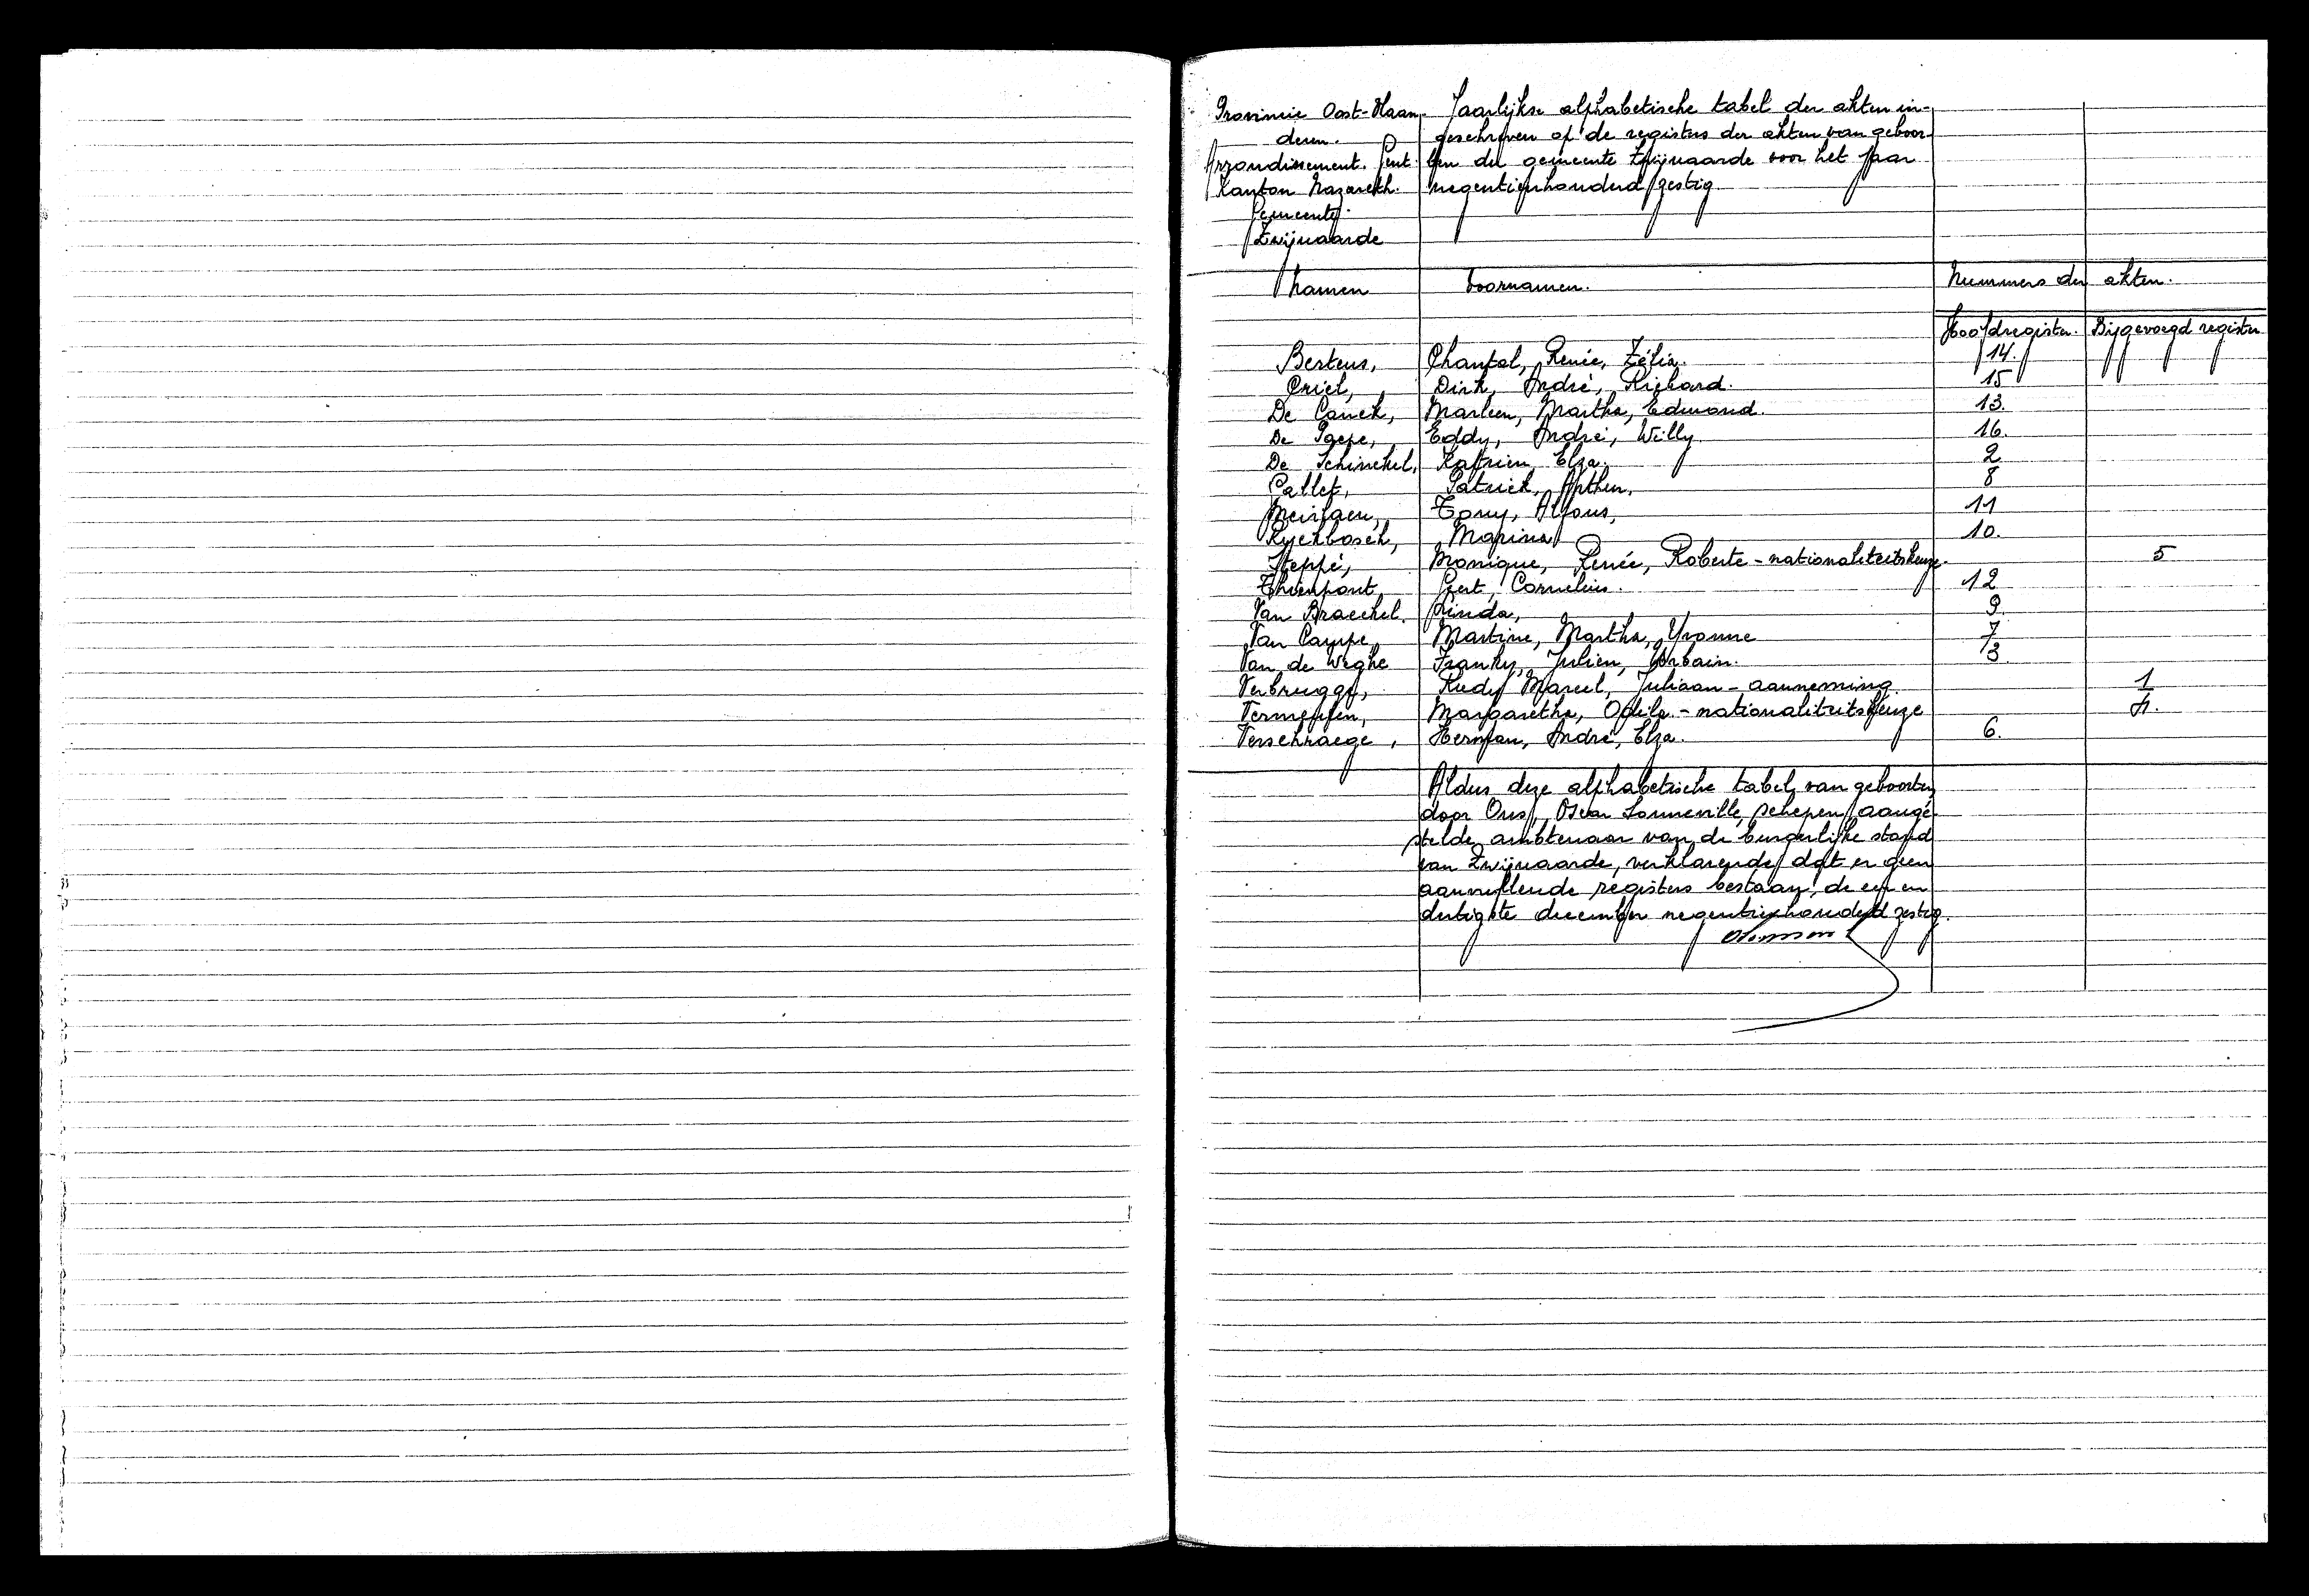 Provincie Oost-Vlaan- Jaarlijkse alphabetische tabel der akten in-
deren. geschreven op de registers der akten van geboor-
Arrondissement. Gent. ten der gemeente Zwijnaarde voor het jaar
Kanton Nazareth. negentienhonderd zestig
Gemeente
Zwijnaarde
Namen Voornamen. Nummers der akten.
Hoofdregister. Bijgevoegd register
Bertens, Chantal, Renée, Zélia. 14.
Criel, Dirk, André, Richard. 15
De Canck, Marleen, Martha, Edmond. 13.
De Paepe, Eddy, André, Willy 16.
De Schinckel, Katrien, Elza. 2
Gallet, Patrick, Arthur, 8
Meirlaen, Tony, Alfons, 11
Ryckbosch, Marina 10.
Steppé, Monique, Renée, Roberte - nationaliteitskeuze. 5
Thienpont, Geert, Cornelius. 12
Van Braeckel. Linda, 9.
Van Campe, Martine, Martha, Yvonne 7
Van de Weghe Franky, Julien, Urbain. 3
Verbrugge, Rudy Marcel, Juliaan - aanneming. 1
Vermeulen, Margaretha, Odila - nationaliteitskeuze 4.
Verschraege, Herman, André, Elza. 6.
Aldus deze alphabetische tabel van geboorten
door Ons, Oscar Sonneville, schepen, aange-
stelde ambtenaar van de burgerlijke stand
van Zwijnaarde, verklarende dat er geen
aanvullende registers bestaan, de een en
dertigste december negentienhonderd zestig.